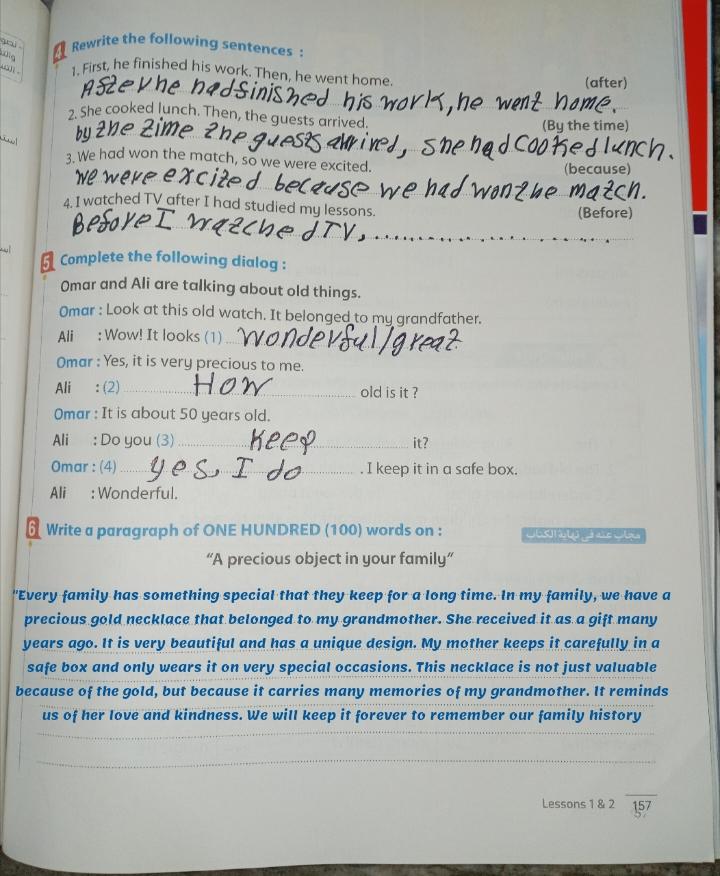 4 Rewrite the following sentences :
1. First, he finished his work. Then, he went home. (after)
After he had finished his work, he went home.
2. She cooked lunch. Then, the guests arrived. (By the time)
by the time the guests arrived, she had cooked lunch.
3. We had won the match, so we were excited. (because)
we were excited because we had won the match.
4. I watched TV after I had studied my lessons. (Before)
Before I watched TV, ....................
5 Complete the following dialog :
Omar and Ali are talking about old things.
Omar : Look at this old watch. It belonged to my grandfather.
Ali : Wow! It looks (1) wonderful/great
Omar : Yes, it is very precious to me.
Ali : (2) How old is it ?
Omar : It is about 50 years old.
Ali : Do you (3) keep it?
Omar : (4) yes, I do . I keep it in a safe box.
Ali : Wonderful.
6 Write a paragraph of ONE HUNDRED (100) words on :
مجاب عنه فى نهاية الكتاب
“A precious object in your family”
"Every family has something special that they keep for a long time. In my family, we have a
precious gold necklace that belonged to my grandmother. She received it as a gift many
years ago. It is very beautiful and has a unique design. My mother keeps it carefully in a
safe box and only wears it on very special occasions. This necklace is not just valuable
because of the gold, but because it carries many memories of my grandmother. It reminds
us of her love and kindness. We will keep it forever to remember our family history
Lessons 1 & 2 157